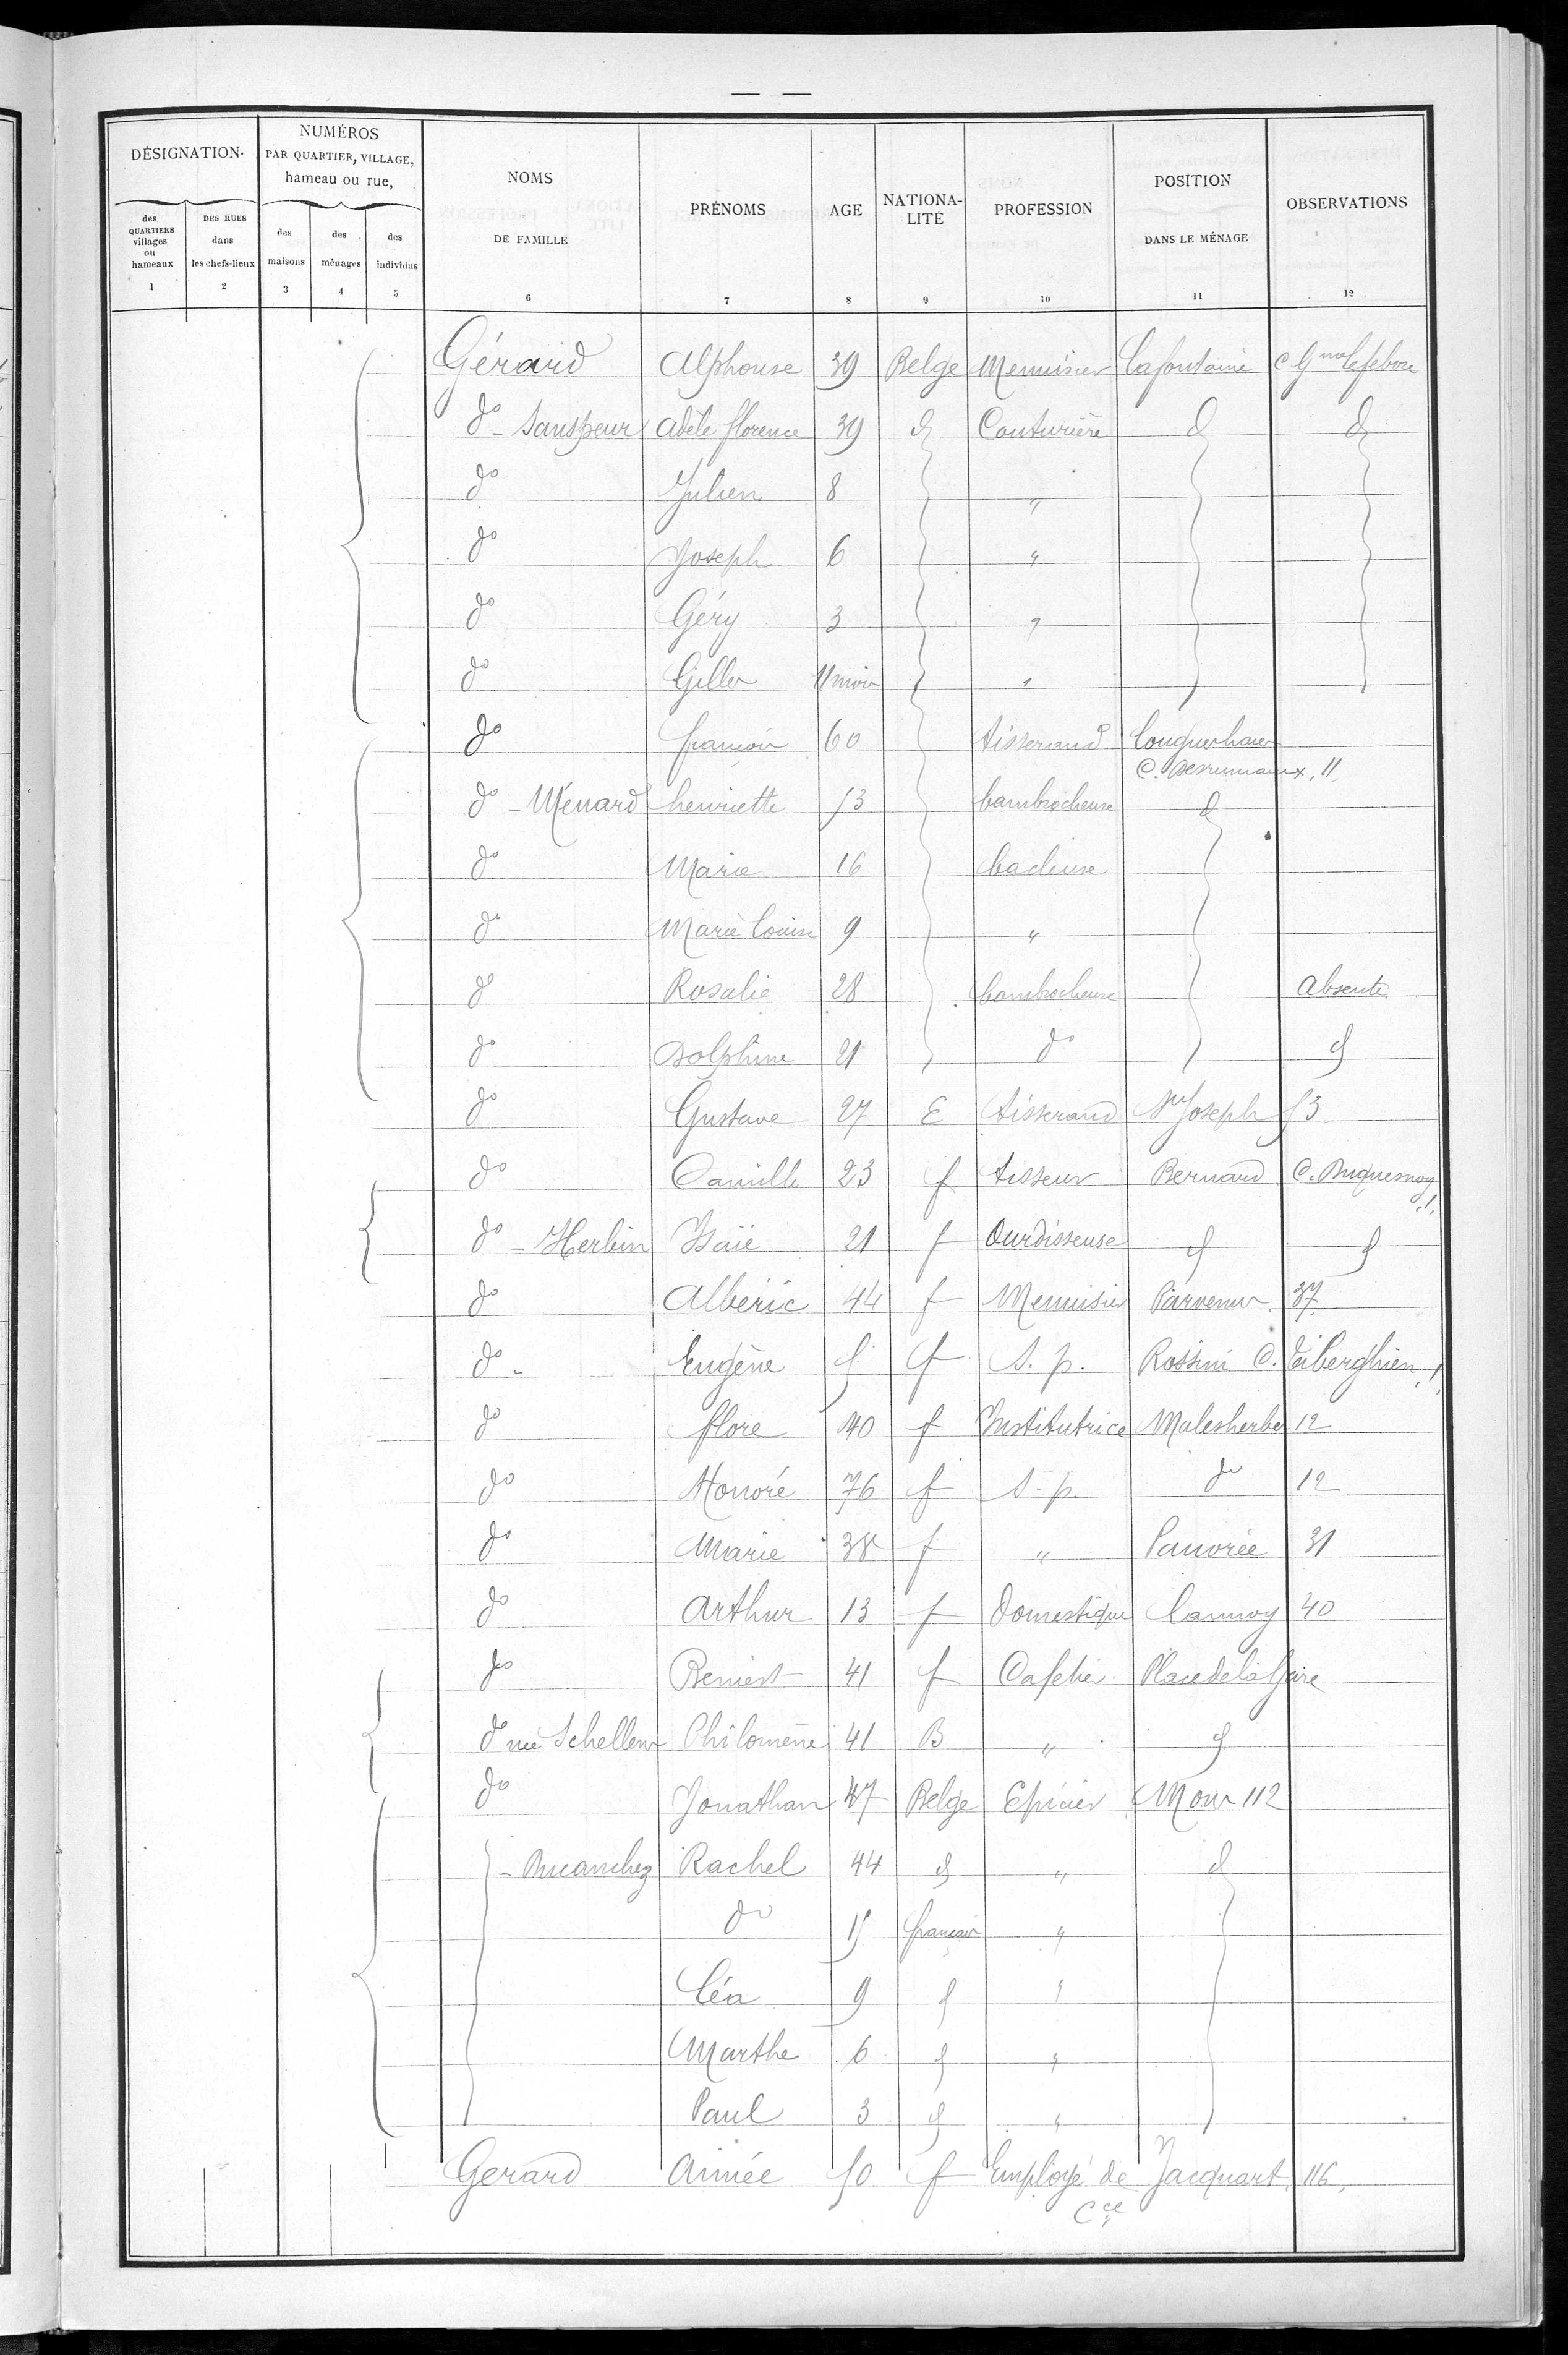 — —
DÉSIGNATION.
NUMÉROS
PAR QUARTIER, VILLAGE,
hameau ou rue,
NOMS
DE FAMILLE
PRÉNOMS
AGE
NATIONA-
LITÉ
PROFESSION
POSITION
DANS LE MÉNAGE
OBSERVATIONS
des QUARTIERS villages ou hameaux
DES RUES dans les chefs-lieux
des maisons
des ménages
des individus
1 2 3 4 5 6 7 8 9 10 11 12
Gérard Alphonse 39 Belge Menuisier Lafontaine C. Gme Lefebvre
do - Sanspeur Adèle florence 39 d Couturière d d
do Julien 8 "
do Joseph 6 "
do Géry 3 "
do Gilles 11 mois "
do françois 60 tisserand Longueshaies
C. Desrumaux, 11,
do - Ménard henriette 53 bambrocheuse d
do Marie 16 bacleuse
do Marie Louise 9 "
do Rosalie 28 bambrocheuse Absente
do Dolphine 21 do d
do Gustave 27 E tisserand St Joseph 53
do Camille 23 f tisseur Bernard C. Duquesnoy
,1,
do - Herbin Isaïe 21 f Ourdisseuse d d
do Albéric 44 f Menuisier Parvenus 37
do - Eugène 5 f S. p. Rossini C. Tiberghien, 1,
do flore 40 f Institutrice Malesherbes 12
do Honoré 76 f S. p. do 12
do Marie 38 f " Pauvrée 31
do Arthur 13 f Domestique Lannoy 40
do Beniest 41 f Cafetier Place de la Gare
do née Schellens Philomène 41 B " d
do Jonathan 47 Belge Epicier Mons 112
- Ducanchez Rachel 44 d " d
do 15 français "
Léa 9 d "
Marthe 6 d "
Paul 3 d "
Gerard Aimée 50 f Employé de Jacquart, 116,
Cce